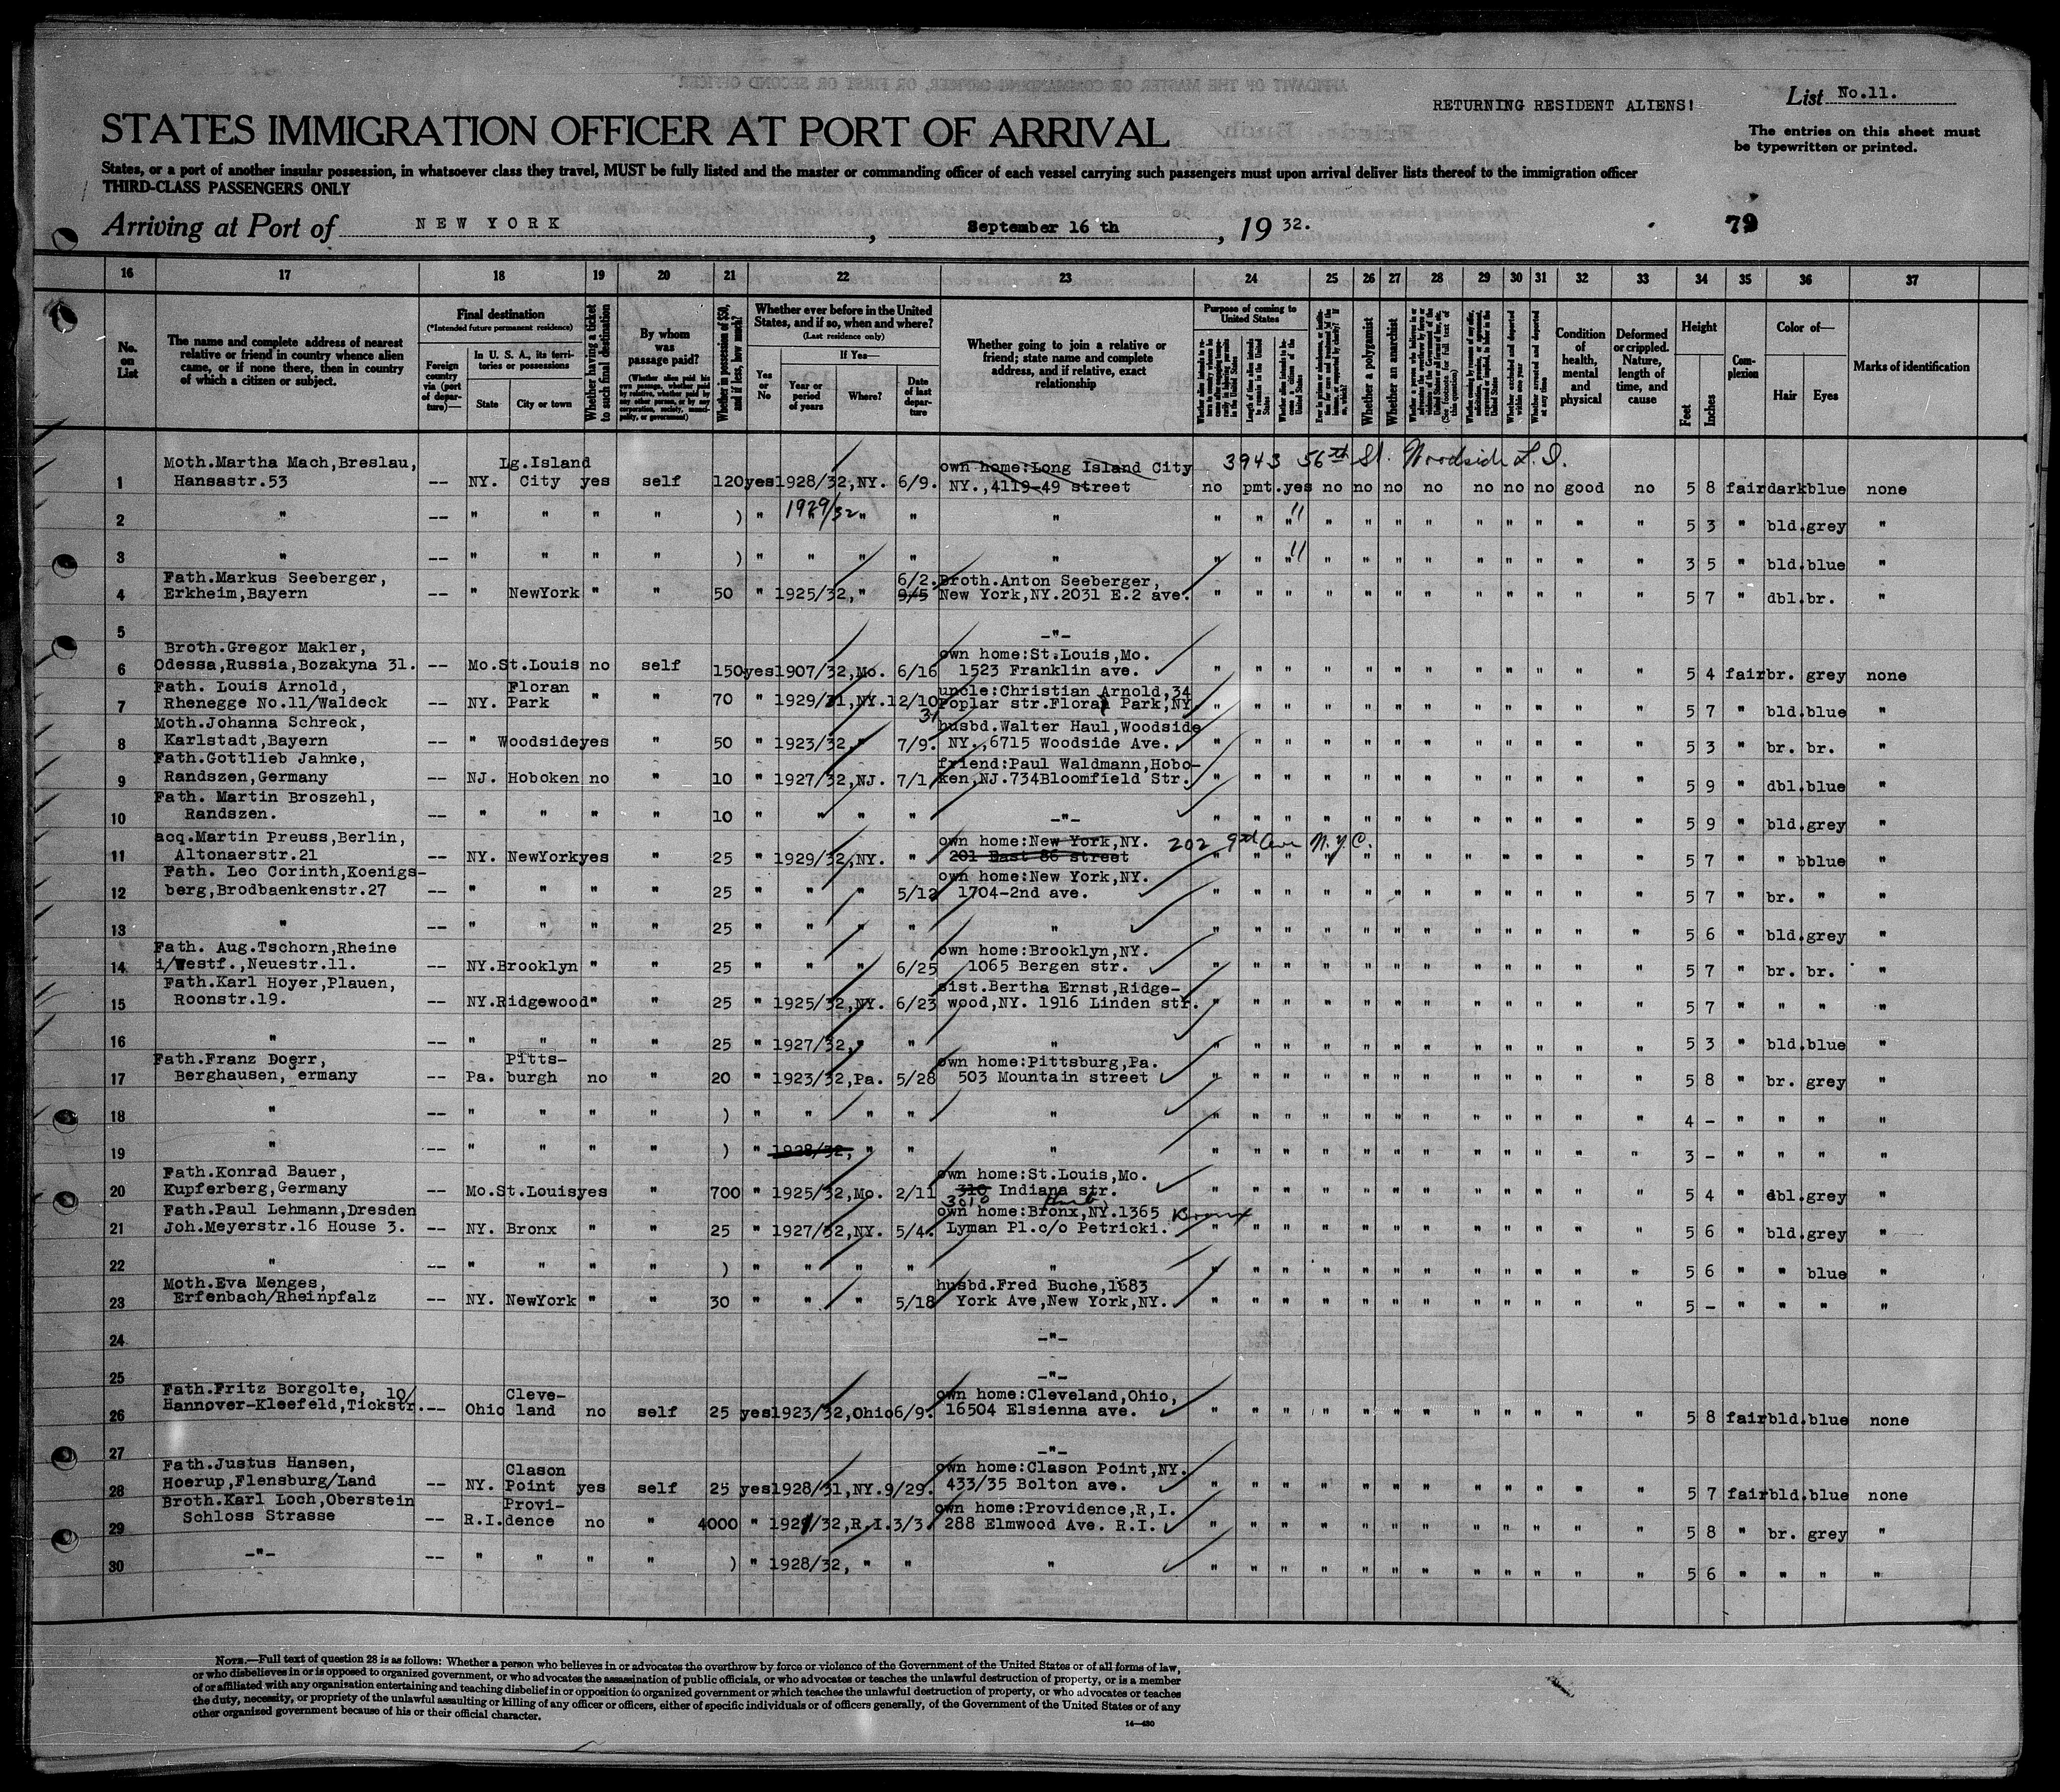 RETURNING RESIDENT ALIENS!
List No.11.
STATES IMMIGRATION OFFICER AT PORT OF ARRIVAL
The entries on this sheet must
be typewritten or printed.
States, or a port of another insular possession, in whatsoever class they travel, MUST be fully listed and the master or commanding officer of each vessel carrying such passengers must upon arrival deliver lists thereof to the immigration officer
THIRD-CLASS PASSENGERS ONLY
Arriving at Port of NEW YORK, September 16 th, 19 32.
79
16 17 18 19 20 21 22 23 24 25 26 27 28 29 30 31 32 33 34 35 36 37
No. on List
The name and complete address of nearest
relative or friend in country whence alien
came, or if none there, then in country
of which a citizen or subject.
Final destination
(*Intended future permanent residence)
Foreign country via (port of departure)—
In U. S. A., its territories or possessions
State
City or town
Whether having a ticket to such final destination
By whom was passage paid?
(Whether alien paid his own passage, whether paid by relative, whether paid by any other person, or by any corporation, society, municipality, or government)
Whether in possession of $50, and if less, how much?
Whether ever before in the United
States, and if so, when and where?
(Last residence only)
Yes or No
If Yes—
Year or period of years
Where?
Date of last departure
Whether going to join a relative or
friend; state name and complete
address, and if relative, exact
relationship
Purpose of coming to United States
Whether a polygamist
Whether an anarchist
Whether excluded and deported within one year
Whether arrested and deported at any time
Condition of health, mental and physical
Deformed or crippled. Nature, length of time, and cause
Height
Feet
Inches
Complexion
Color of—
Hair
Eyes
Marks of identification
3943 56th St. Woodside L.I.
1 Moth.Martha Mach,Breslau, Hansastr.53 -- NY. Lg.Island City yes self 120 yes 1928/32,NY. 6/9. own home:Long Island City NY.,4119-49 street no pmt. yes no no no no no no no good no 5 8 fair dark blue none
2 " -- " " " " ) " 1929/32 " " " " " " " " " " " " " " " 5 3 " bld. grey "
3 " -- " " " " ) " " " " " " " " " " " " " " " " " 3 5 " bld. blue "
4 Fath.Markus Seeberger, Erkheim,Bayern -- " NewYork " " 50 " 1925/32," 6/2. 9/5 Broth.Anton Seeberger, New York,NY.2031 E.2 ave. " " " " " " " " " " " " 5 7 " dbl. br. "
5 -"-
6 Broth.Gregor Makler, Odessa,Russia,Bozakyna 31. -- Mo. St.Louis no self 150 yes 1907/32,Mo. 6/16 own home:St.Louis,Mo. 1523 Franklin ave. " " " " " " " " " " " " 5 4 fair br. grey none
7 Fath. Louis Arnold, Rhenegge No.11/Waldeck -- NY. Floran Park " " 70 " 1929/31,NY. 12/10 31 uncle:Christian Arnold,34 Poplar str.Floral Park,NY. " " " " " " " " " " " " 5 7 " bld. blue "
8 Moth.Johanna Schreck, Karlstadt,Bayern -- " Woodside yes " 50 " 1923/32," 7/9. husbd.Walter Haul,Woodside NY.,6715 Woodside Ave. " " " " " " " " " " " " 5 3 " br. br. "
9 Fath.Gottlieb Jahnke, Randszen,Germany -- NJ. Hoboken no " 10 " 1927/32,NJ. 7/1 friend:Paul Waldmann,Hobo- ken,NJ.734Bloomfield Str. " " " " " " " " " " " " 5 9 " dbl. blue "
10 Fath. Martin Broszehl, Randszen. -- " " " " 10 " " " " -"- " " " " " " " " " " " " 5 9 " bld. grey "
11 acq.Martin Preuss,Berlin, Altonaerstr.21 -- NY. NewYork yes " 25 " 1929/32,NY. " own home:New York,NY. 201 East 86 street 202 92d Ave N.Y.C. " " " " " " " " " " " " 5 7 " " bblue "
12 Fath. Leo Corinth,Koenigs- berg,Brodbaenkenstr.27 -- " " " " 25 " " " 5/12 own home:New York,NY. 1704-2nd ave. " " " " " " " " " " " " 5 7 " br. " "
13 " -- " " " " 25 " " " " " " " " " " " " " " " " " 5 6 " bld. grey "
14 Fath. Aug.Tschorn,Rheine i/Westf.,Neuestr.11. -- NY. Brooklyn " " 25 " " " 6/25 own home:Brooklyn,NY. 1065 Bergen str. " " " " " " " " " " " " 5 7 " br. br. "
15 Fath.Karl Hoyer,Plauen, Roonstr.19. -- NY. Ridgewood " " 25 " 1925/32,NY. 6/23 sist.Bertha Ernst,Ridge- wood,NY. 1916 Linden str. " " " " " " " " " " " " 5 7 " " " "
16 " -- " " " " 25 " 1927/32," " " " " " " " " " " " " " " 5 3 " bld. blue "
17 Fath.Franz Doerr, Berghausen, Germany -- Pa. Pitts- burgh no " 20 " 1923/32,Pa. 5/28 own home:Pittsburg,Pa. 503 Mountain street " " " " " " " " " " " " 5 8 " br. grey "
18 " -- " " " " ) " " " " " " " " " " " " " " " " " 4 - " " " "
19 " -- " " " " ) " 1928/32, " " " " " " " " " " " " " " " 3 - " " " "
20 Fath.Konrad Bauer, Kupferberg,Germany -- Mo. St.Louis yes " 700 " 1925/32,Mo. 2/11 own home:St.Louis,Mo. 310 Indiana str. 3010 " " " " " " " " " " " " 5 4 " dbl. grey "
21 Fath.Paul Lehmann,Dresden Joh.Meyerstr.16 House 3. -- NY. Bronx " " 25 " 1927/32,NY. 5/4. own home:Bronx,NY.1365 Bronx Lyman Pl.c/o Petricki. " " " " " " " " " " " " 5 6 " bld. grey "
22 " -- " " " " ) " " " " " " " " " " " " " " " " " 5 6 " " blue "
23 Moth.Eva Menges, Erfenbach/Rheinpfalz -- NY. NewYork " " 30 " " " 5/18 husbd.Fred Buche,1683 York Ave,New York,NY. " " " " " " " " " " " " 5 - " " " "
24 -"-
25 -"-
26 Fath.Fritz Borgolte, 10/ Hannover-Kleefeld,Tickstr. -- Ohio Cleve- land no self 25 yes 1923/32,Ohio 6/9. own home:Cleveland,Ohio, 16504 Elsienna ave. " " " " " " " " " " " " 5 8 fair bld. blue none
27 -"-
28 Fath.Justus Hansen, Hoerup,Flensburg/Land -- NY. Clason Point yes self 25 yes 1928/31,NY. 9/29. own home:Clason Point,NY. 433/35 Bolton ave. " " " " " " " " " " " " 5 7 fair bld. blue none
29 Broth.Karl Loch,Oberstein Schloss Strasse -- R.I. Provi- dence no " 4000 " 1921/32,R.I. 3/3 own home:Providence,R,I. 288 Elmwood Ave. R.I. " " " " " " " " " " " " 5 8 " br. grey "
30 -"- -- " " " " ) " 1928/32, " " " " " " " " " " " " " " " 5 6 " " " "
NOTE.—Full text of question 28 is as follows: Whether a person who believes in or advocates the overthrow by force or violence of the Government of the United States or of all forms of law,
or who disbelieves in or is opposed to organized government, or who advocates the assassination of public officials, or who advocates or teaches the unlawful destruction of property, or is a member
of or affiliated with any organization entertaining and teaching disbelief in or opposition to organized government or which teaches the unlawful destruction of property, or who advocates or teaches
the duty, necessity, or propriety of the unlawful assaulting or killing of any officer or officers, either of specific individuals or of officers generally, of the Government of the United States or of any
other organized government because of his or their official character.
14—430